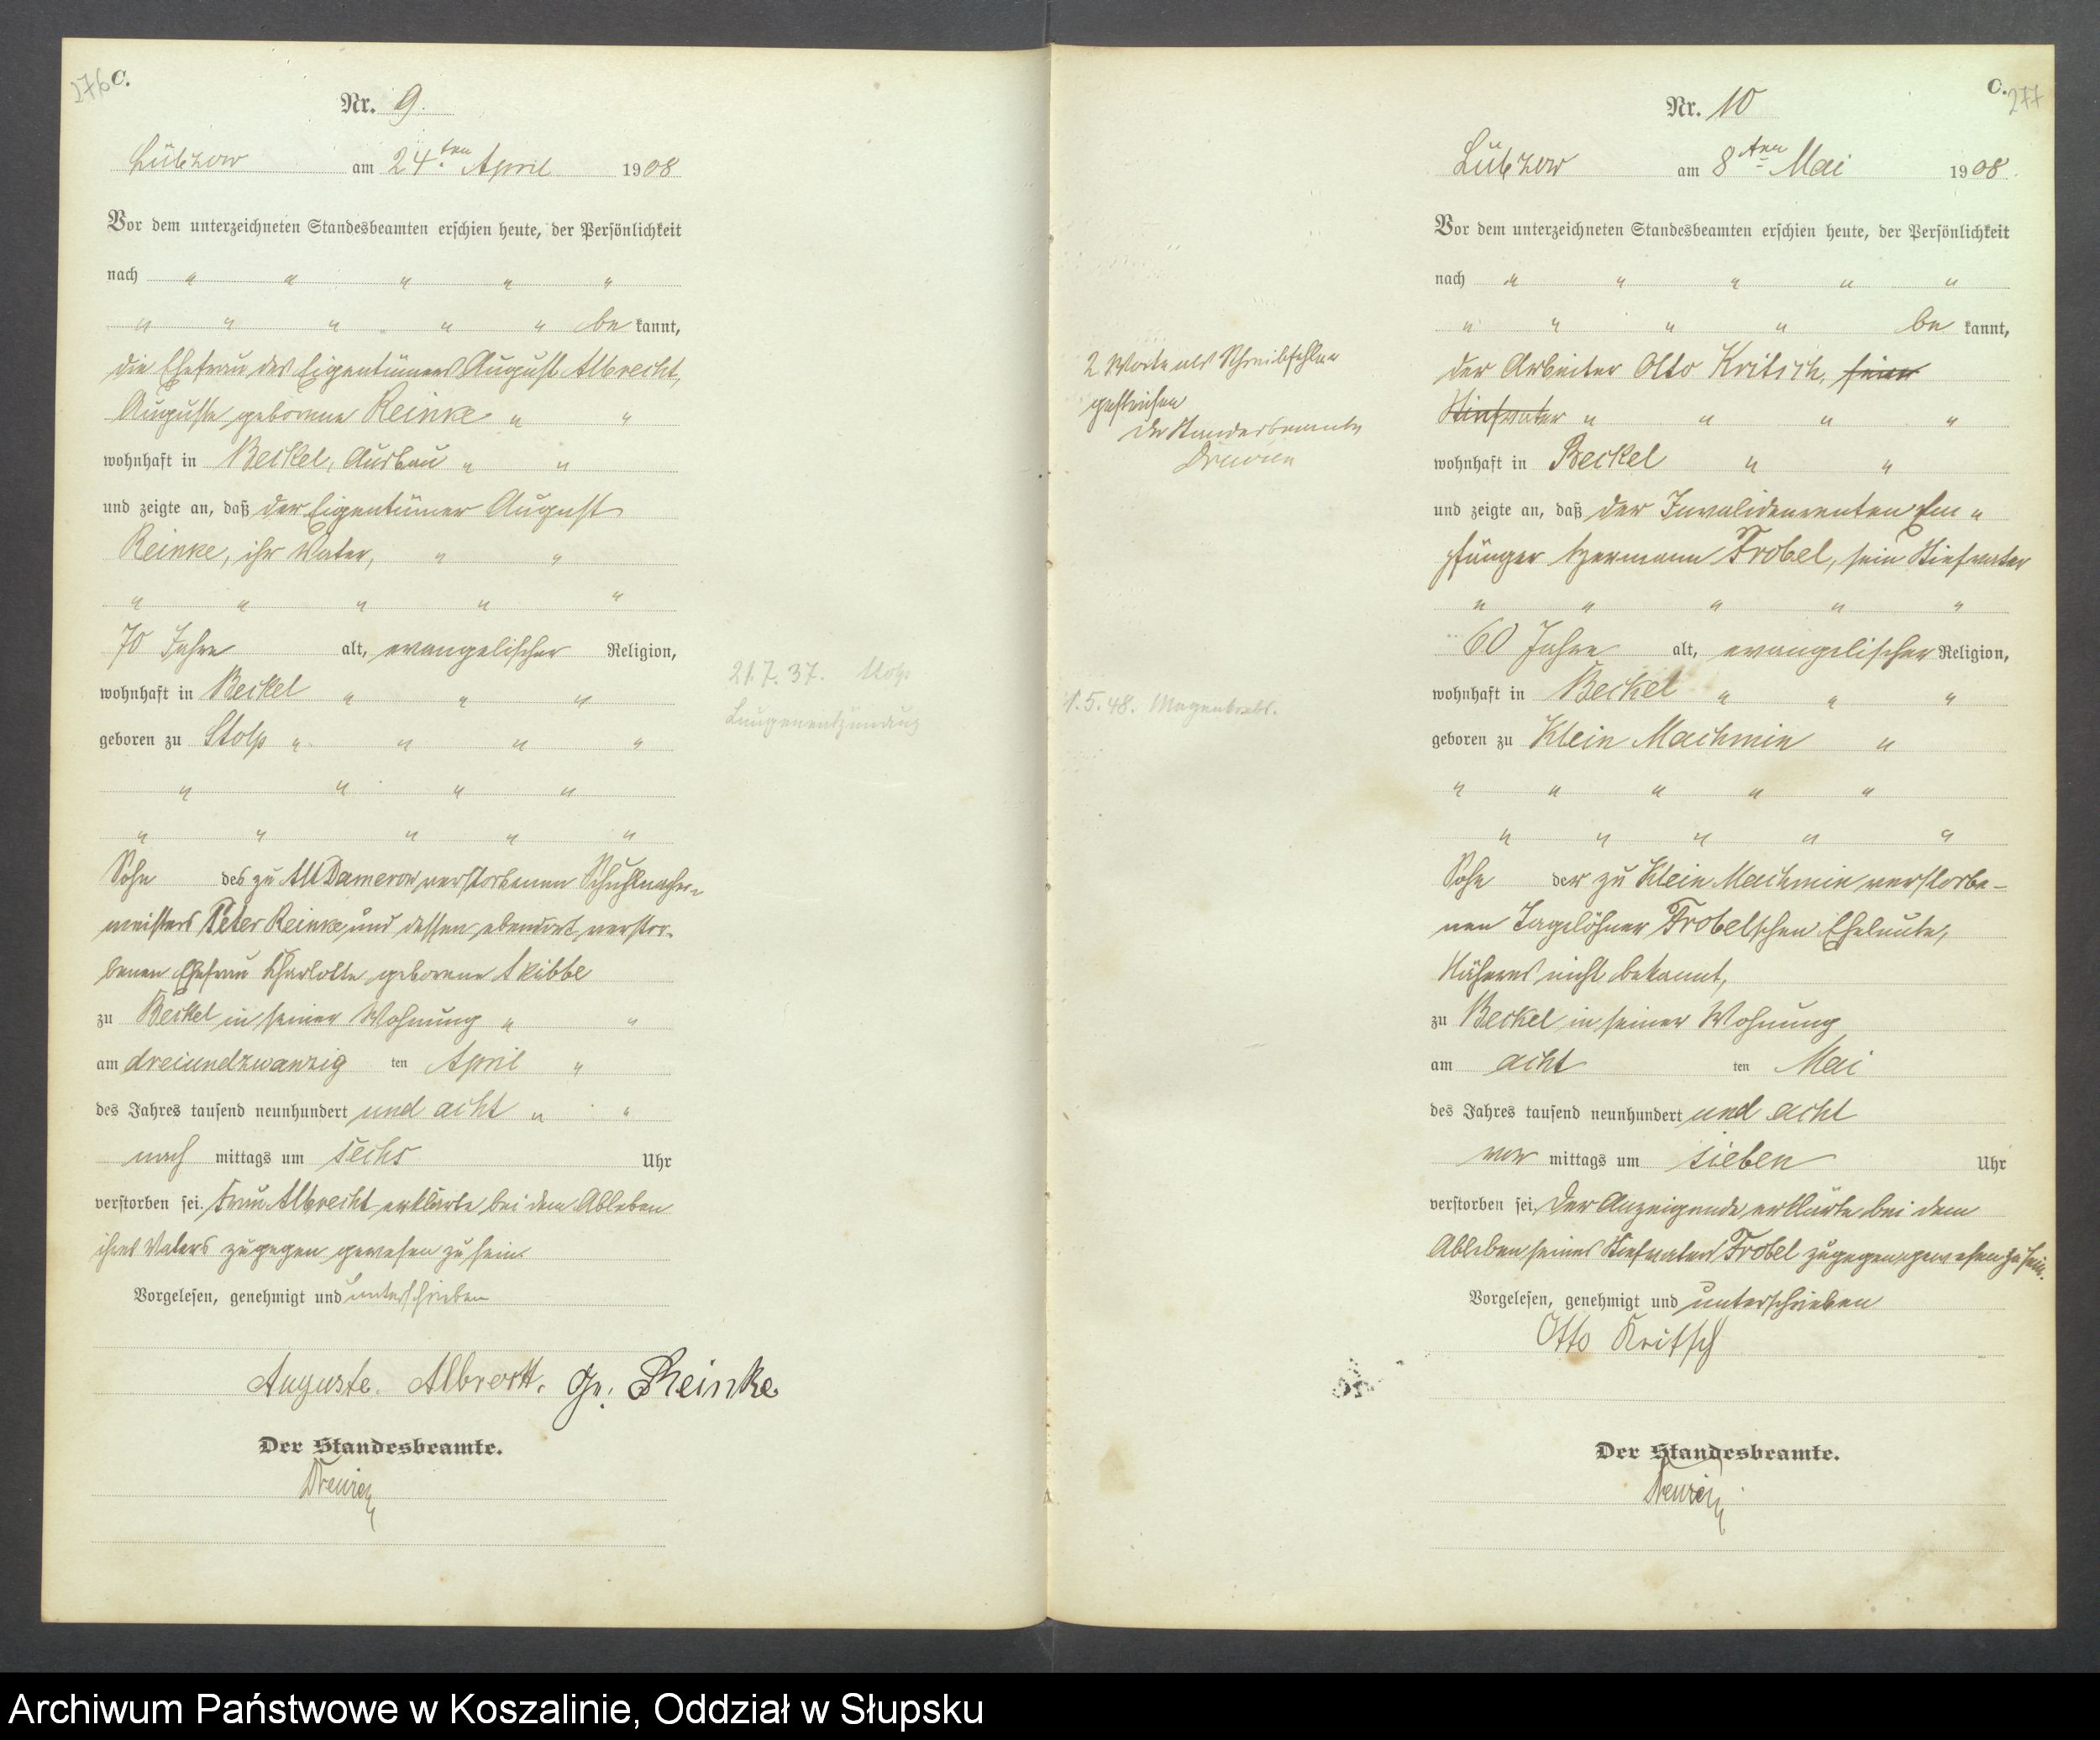 276 C.
Nr. 9.
Lübzow am 24.ten April 1908
Vor dem unterzeichneten Standesbeamten erschien heute, der Persönlichkeit
nach " " " " "
" " " " " be kannt,
die Ehefrau des Eigentümers August Albrecht,
Auguste geborene Reinke " "
wohnhaft in Beckel, Ausbau " "
und zeigte an, daß der Eigentümer August
Reinke, ihr Vater, " "
" " " " "
70 Jahre alt, evangelischer Religion,
wohnhaft in Beckel " " "
geboren zu Stolp " " " "
" " " "
" " " " "
Sohn des zu Alt Damerow verstorbenen Schuhmacher-
meisters Peter Reinke und dessen ebendort verstor-
benen Ehefrau Charlotte geborene Skibbe
zu Beckel in seiner Wohnung " "
am dreiundzwanzig ten April "
des Jahres tausend neunhundert und acht " "
nach mittags um sechs Uhr
verstorben sei. Frau Albrecht erklärte bei dem Ableben
ihres Vaters zugegen gewesen zu sein.
Vorgelesen, genehmigt und unterschrieben
Auguste. Albrecht. ge: Reinke
Der Standesbeamte.
Drewien
21.7.37. Stolp
Lungenentzündung
C. 277
Nr. 10
Lübzow am 8ten Mai 1908.
Vor dem unterzeichneten Standesbeamten erschien heute, der Persönlichkeit
nach " " " " "
" " " " be kannt,
der Arbeiter Otto Kritsch, sein
Stiefvater " " " "
wohnhaft in Beckel " "
und zeigte an, daß der Invalidenrenten Em "
pfänger Hermann Trobel, sein Stiefvater
" " " " "
60 Jahre alt, evangelischer Religion,
wohnhaft in Beckel " " "
geboren zu Klein Machmin "
" " " " "
" " " " "
Sohn der zu Klein Machmin verstorbe-
nen Tagelöhner Trobelschen Eheleute,
Näheres nicht bekannt,
zu Beckel in seiner Wohnung
am acht ten Mai
des Jahres tausend neunhundert und acht
vor mittags um sieben Uhr
verstorben sei. Der Anzeigende erklärte bei dem
Ableben seines Stiefvaters Trobel zugegen gewesen zu sein.
Vorgelesen, genehmigt und unterschrieben
Otto Kritsch
Der Standesbeamte.
Drewien
2 Worte als Schreibfehler
gestrichen
Der Standesbeamte
Drewien
1.5.48. Magenkrebs.
Archiwum Państwowe w Koszalinie, Oddział w Słupsku